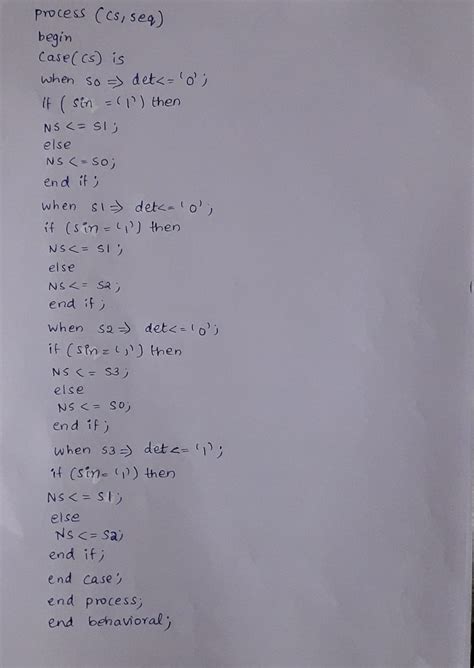 process (cs, seq)
begin
Case(cs) is
when s0 => det<= '0';
if ( sin = '1') then
NS <= S1;
else
NS <= S0;
end if;
when s1 => det<= '0';
if (sin = '1') then
NS <= S1;
else
NS <= S2;
end if;
when s2 => det<= '0';
if (sin = '1') then
NS <= S3;
else
NS <= S0;
end if;
when s3 => det <= '1';
if (sin= '1') then
NS <= S1;
else
NS <= S2;
end if;
end case;
end process;
end behavioral;